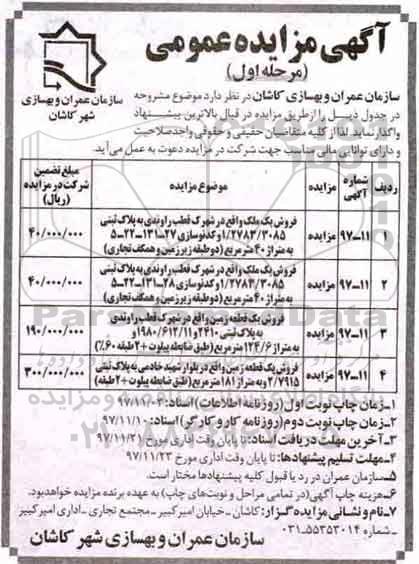 آگهی مزایده عمومی
(مرحله اول)
سازمان عمران و بهسازی
شهر کاشان
سازمان عمران و بهسازی کاشان در نظر دارد موضوع مشروحه
در جدول ذیل را از طریق مزایده در قبال بالاترین پیشنهاد
واگذار نماید. لذا از کلیه متقاضیان حقیقی و حقوقی واجد صلاحیت
و دارای توانایی مالی مناسب جهت شرکت در مزایده دعوت به عمل می‌آید.
ردیف شماره آگهی مزایده موضوع مزایده مبلغ تضمین شرکت در مزایده (ریال)
۱ ۱۱-۹۷ مزایده فروش یک ملک واقع در شهرک قطب راوندی به پلاک ثبتی
۱/۲۷۸۳/۳۰۸۵ و کدنوسازی ۲۷-۱۳۱-۲۲-۵
به متراژ ۴۰ مترمربع (دوطبقه زیرزمین و همکف تجاری) ۴۰/۰۰۰/۰۰۰
۲ ۱۱-۹۷ مزایده فروش یک ملک واقع در شهرک قطب راوندی به پلاک ثبتی
۱/۲۷۸۳/۳۰۸۵ و کدنوسازی ۲۸-۱۳۱-۲۲-۵
به متراژ ۴۰ مترمربع (دوطبقه زیرزمین و همکف تجاری) ۴۰/۰۰۰/۰۰۰
۳ ۱۱-۹۷ مزایده فروش یک قطعه زمین واقع در شهرک قطب راوندی
به پلاک ثبتی ۲۴۱۰ و ۱۹۸۰/۶۱۲/۱۱
به متراژ ۱۲۴/۶ مترمربع (طبق ضابطه پیلوت +۲ طبقه ۶۰٪) ۱۹۰/۰۰۰/۰۰۰
۴ ۱۱-۹۷ مزایده فروش یک قطعه زمین واقع در بلوار شهید خادمی به پلاک ثبتی
۲/۷۹۱۵ و به متراژ ۱۸۱ مترمربع (طبق ضابطه پیلوت +۲ طبقه) ۳۰۰/۰۰۰/۰۰۰
۱-زمان چاپ نوبت اول (روزنامه اطلاعات) اسناد: ۹۷/۱۱/۰۳
۲-زمان چاپ نوبت دوم (روزنامه کار و کارگر) اسناد: ۹۷/۱۱/۱۰
۳-آخرین مهلت دریافت اسناد: تا پایان وقت اداری مورخ ۹۷/۱۱/۲۱
۴-مهلت تسلیم پیشنهادها: تا پایان وقت اداری مورخ ۹۷/۱۱/۲۳
۵-سازمان عمران در رد یا قبول کلیه پیشنهادها مختار است.
۶-هزینه چاپ آگهی (در تمامی مراحل و نوبت‌های چاپ) به عهده برنده مزایده خواهد بود.
۷-نام و نشانی مزایده گزار: کاشان - خیابان امیرکبیر - مجتمع تجاری - اداری امیرکبیر
- شماره ۵۵۳۵۳۰۱۴-۰۳۱
سازمان عمران و بهسازی شهر کاشان